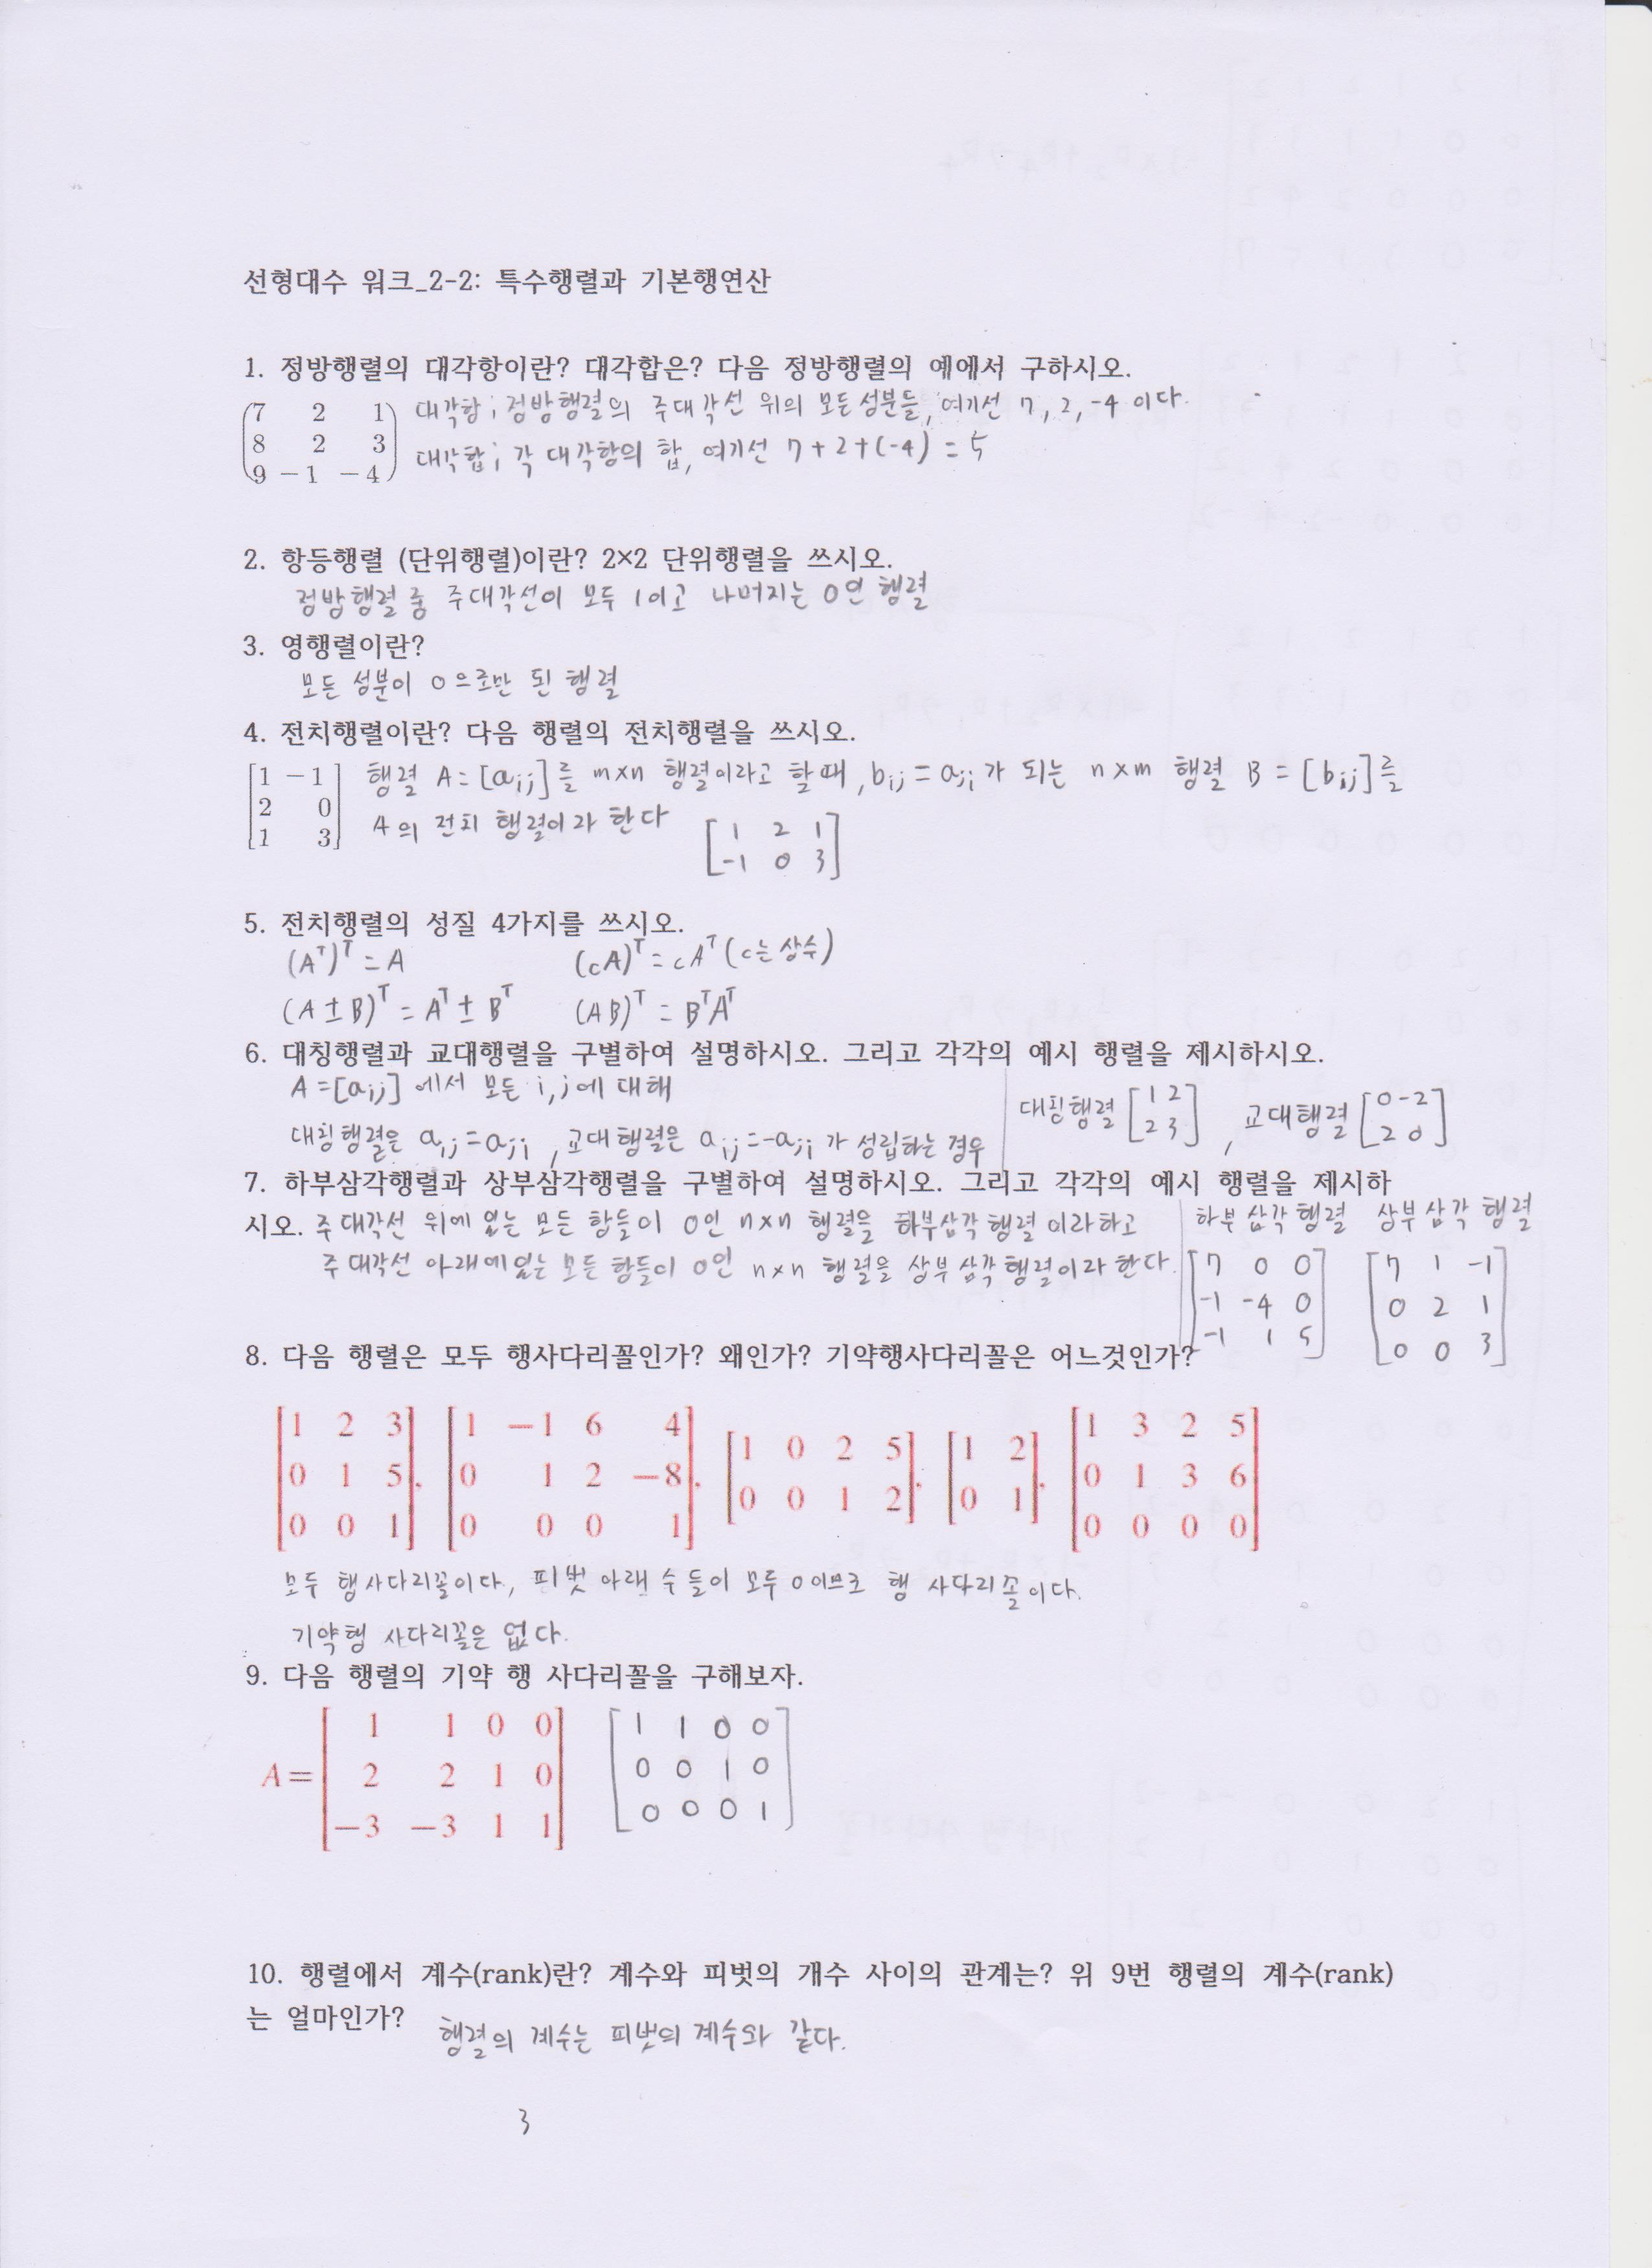 선형대수 워크_2-2: 특수행렬과 기본행연산
1. 정방행렬의 대각항이란? 대각합은? 다음 정방행렬의 예에서 구하시오.
7 2 1
8 2 3
9 −1 −4
대각항 ; 정방행렬의 주대각선 위의 모든성분들, 여기선 7, 2, -4 이다.
대각합 ; 각 대각항의 합, 여기선 7+2+(-4) = 5
2. 항등행렬 (단위행렬)이란? 2×2 단위행렬을 쓰시오.
정방행렬 중 주대각선이 모두 1이고 나머지는 0인 행렬
3. 영행렬이란?
모든 성분이 0으로만 된 행렬
4. 전치행렬이란? 다음 행렬의 전치행렬을 쓰시오.
1 −1
2 0
1 3
행렬 A=[aij]를 m×n 행렬이라고 할때, bij = aji가 되는 n×m 행렬 B = [bij]를
A의 전치 행렬이라 한다
1 2 1
-1 0 3
5. 전치행렬의 성질 4가지를 쓰시오.
(Aᵀ)ᵀ = A (cA)ᵀ = cAᵀ (c는 상수)
(A±B)ᵀ = Aᵀ± Bᵀ (AB)ᵀ = BᵀAᵀ
6. 대칭행렬과 교대행렬을 구별하여 설명하시오. 그리고 각각의 예시 행렬을 제시하시오.
A=[aij] 에서 모든 i,j에 대해
대칭행렬은 aij=aji , 교대행렬은 aij=-aji 가 성립하는 경우
대칭행렬 [1 2
2 3] , 교대행렬 [0 -2
2 0]
7. 하부삼각행렬과 상부삼각행렬을 구별하여 설명하시오. 그리고 각각의 예시 행렬을 제시하
시오. 주대각선 위에 있는 모든 항들이 0인 n×n 행렬을 하부삼각행렬 이라하고
주대각선 아래에있는 모든 항들이 0인 n×n 행렬을 상부삼각행렬이라 한다.
하부 삼각 행렬 상부 삼각 행렬
7 0 0 7 1 -1
-1 -4 0 0 2 1
-1 1 5 0 0 3
8. 다음 행렬은 모두 행사다리꼴인가? 왜인가? 기약행사다리꼴은 어느것인가?
[1 2 3
0 1 5
0 0 1],
[1 −1 6 4
0 1 2 −8
0 0 0 1],
[1 0 2 5
0 0 1 2],
[1 2
0 1],
[1 3 2 5
0 1 3 6
0 0 0 0]
모두 행사다리꼴이다, 피벗 아랜 수들이 모두 0이므로 행 사다리꼴이다.
기약행 사다리꼴은 없다.
9. 다음 행렬의 기약 행 사다리꼴을 구해보자.
A= [1 1 0 0
2 2 1 0
−3 −3 1 1]
1 1 0 0
0 0 1 0
0 0 0 1
10. 행렬에서 계수(rank)란? 계수와 피벗의 개수 사이의 관계는? 위 9번 행렬의 계수(rank)
는 얼마인가? 행렬의 계수는 피벗의 계수와 같다.
3